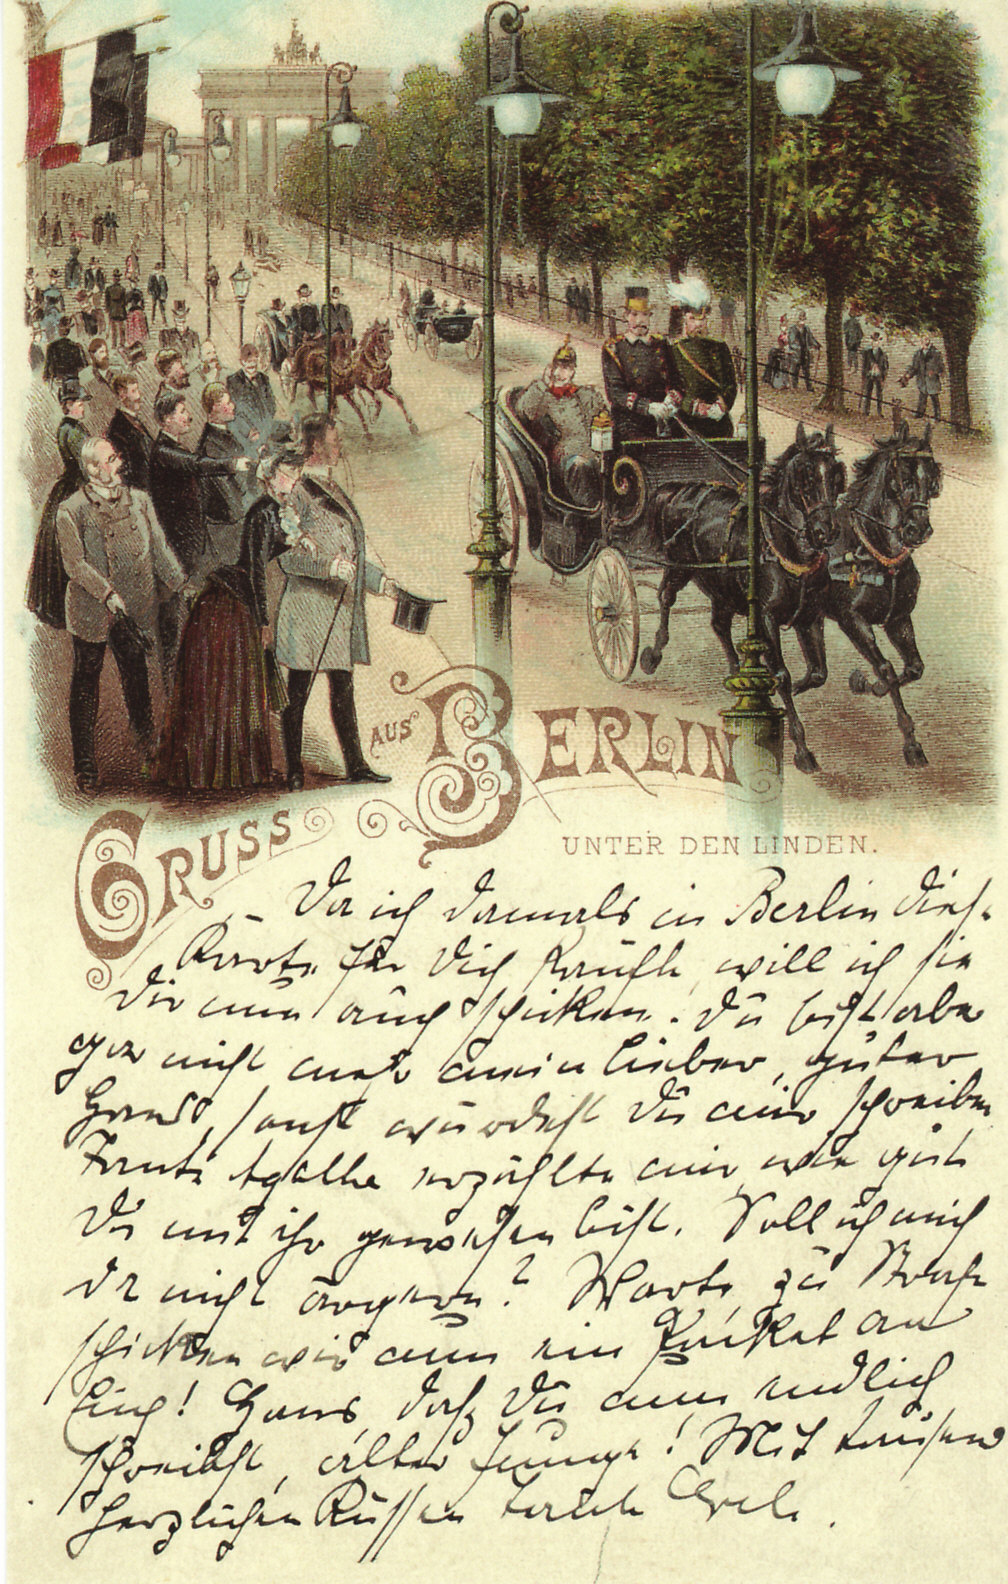 GRUSS AUS BERLIN
UNTER DEN LINDEN.
Da ich damals in Berlin diese
Karte für Dich kaufte, will ich sie
Dir nun auch schicken. Du bist aber
gar nicht mehr mein lieber, guter
Hans, sonst würdest Du mir schreiben
Tante erzählte mir, wie gut
Du mit ihr gewesen bist. Soll ich mich
da nicht ärgern? Warte, zu Strafe
schicken wir nun ein Packet an
Hans, daß Du nun endlich
schreibst, alter Junge! Mit tausend
herzlichen Küssen Tante